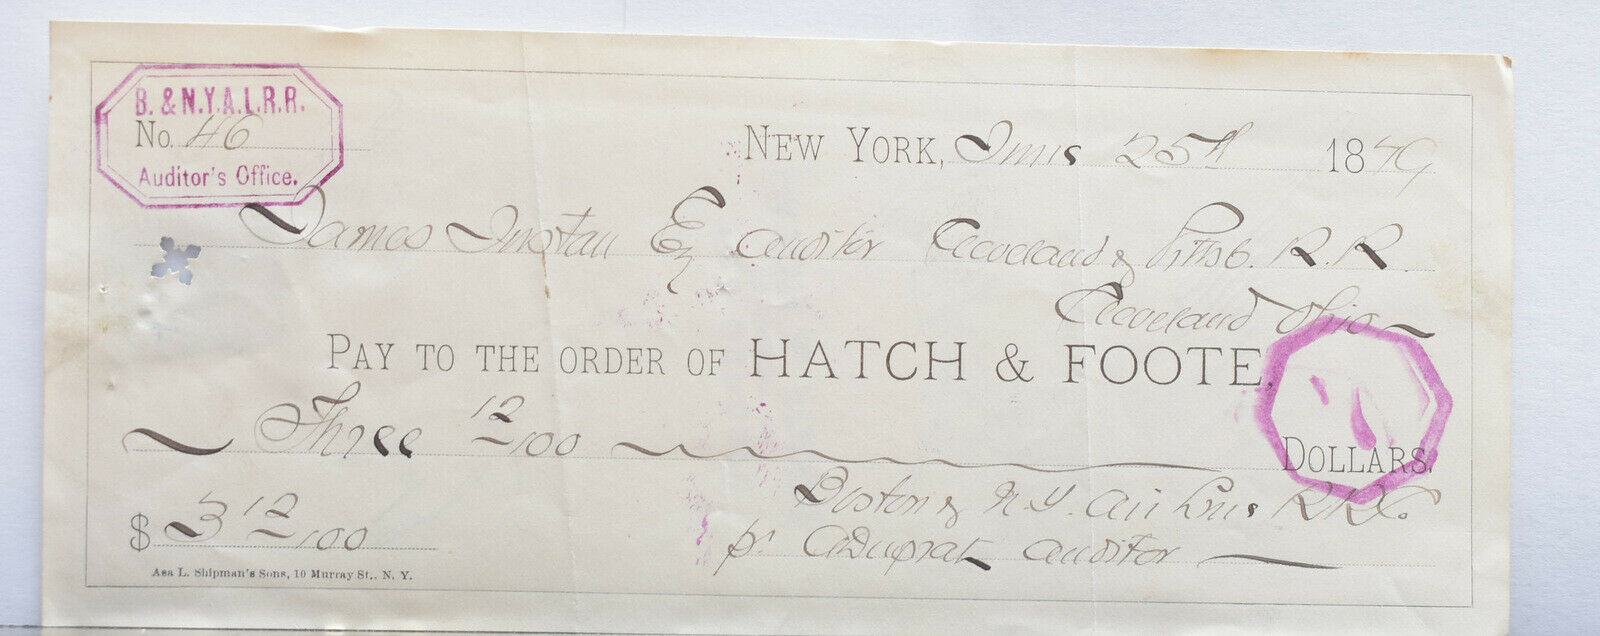 B. & N.Y.A.L.R.R.
No. 46
Auditor's Office.
NEW YORK, 25th 1879
James Esq Auditor Cleveland & Pittsb. R.R.
Cleveland Ohio
PAY TO THE ORDER OF HATCH & FOOTE,
Three 12/100 DOLLARS.
Boston & N.Y. Air Line R.R. Co.
$ 3 12/100
pr Auditor
Asa L. Shipman's Sons, 10 Murray St., N. Y.